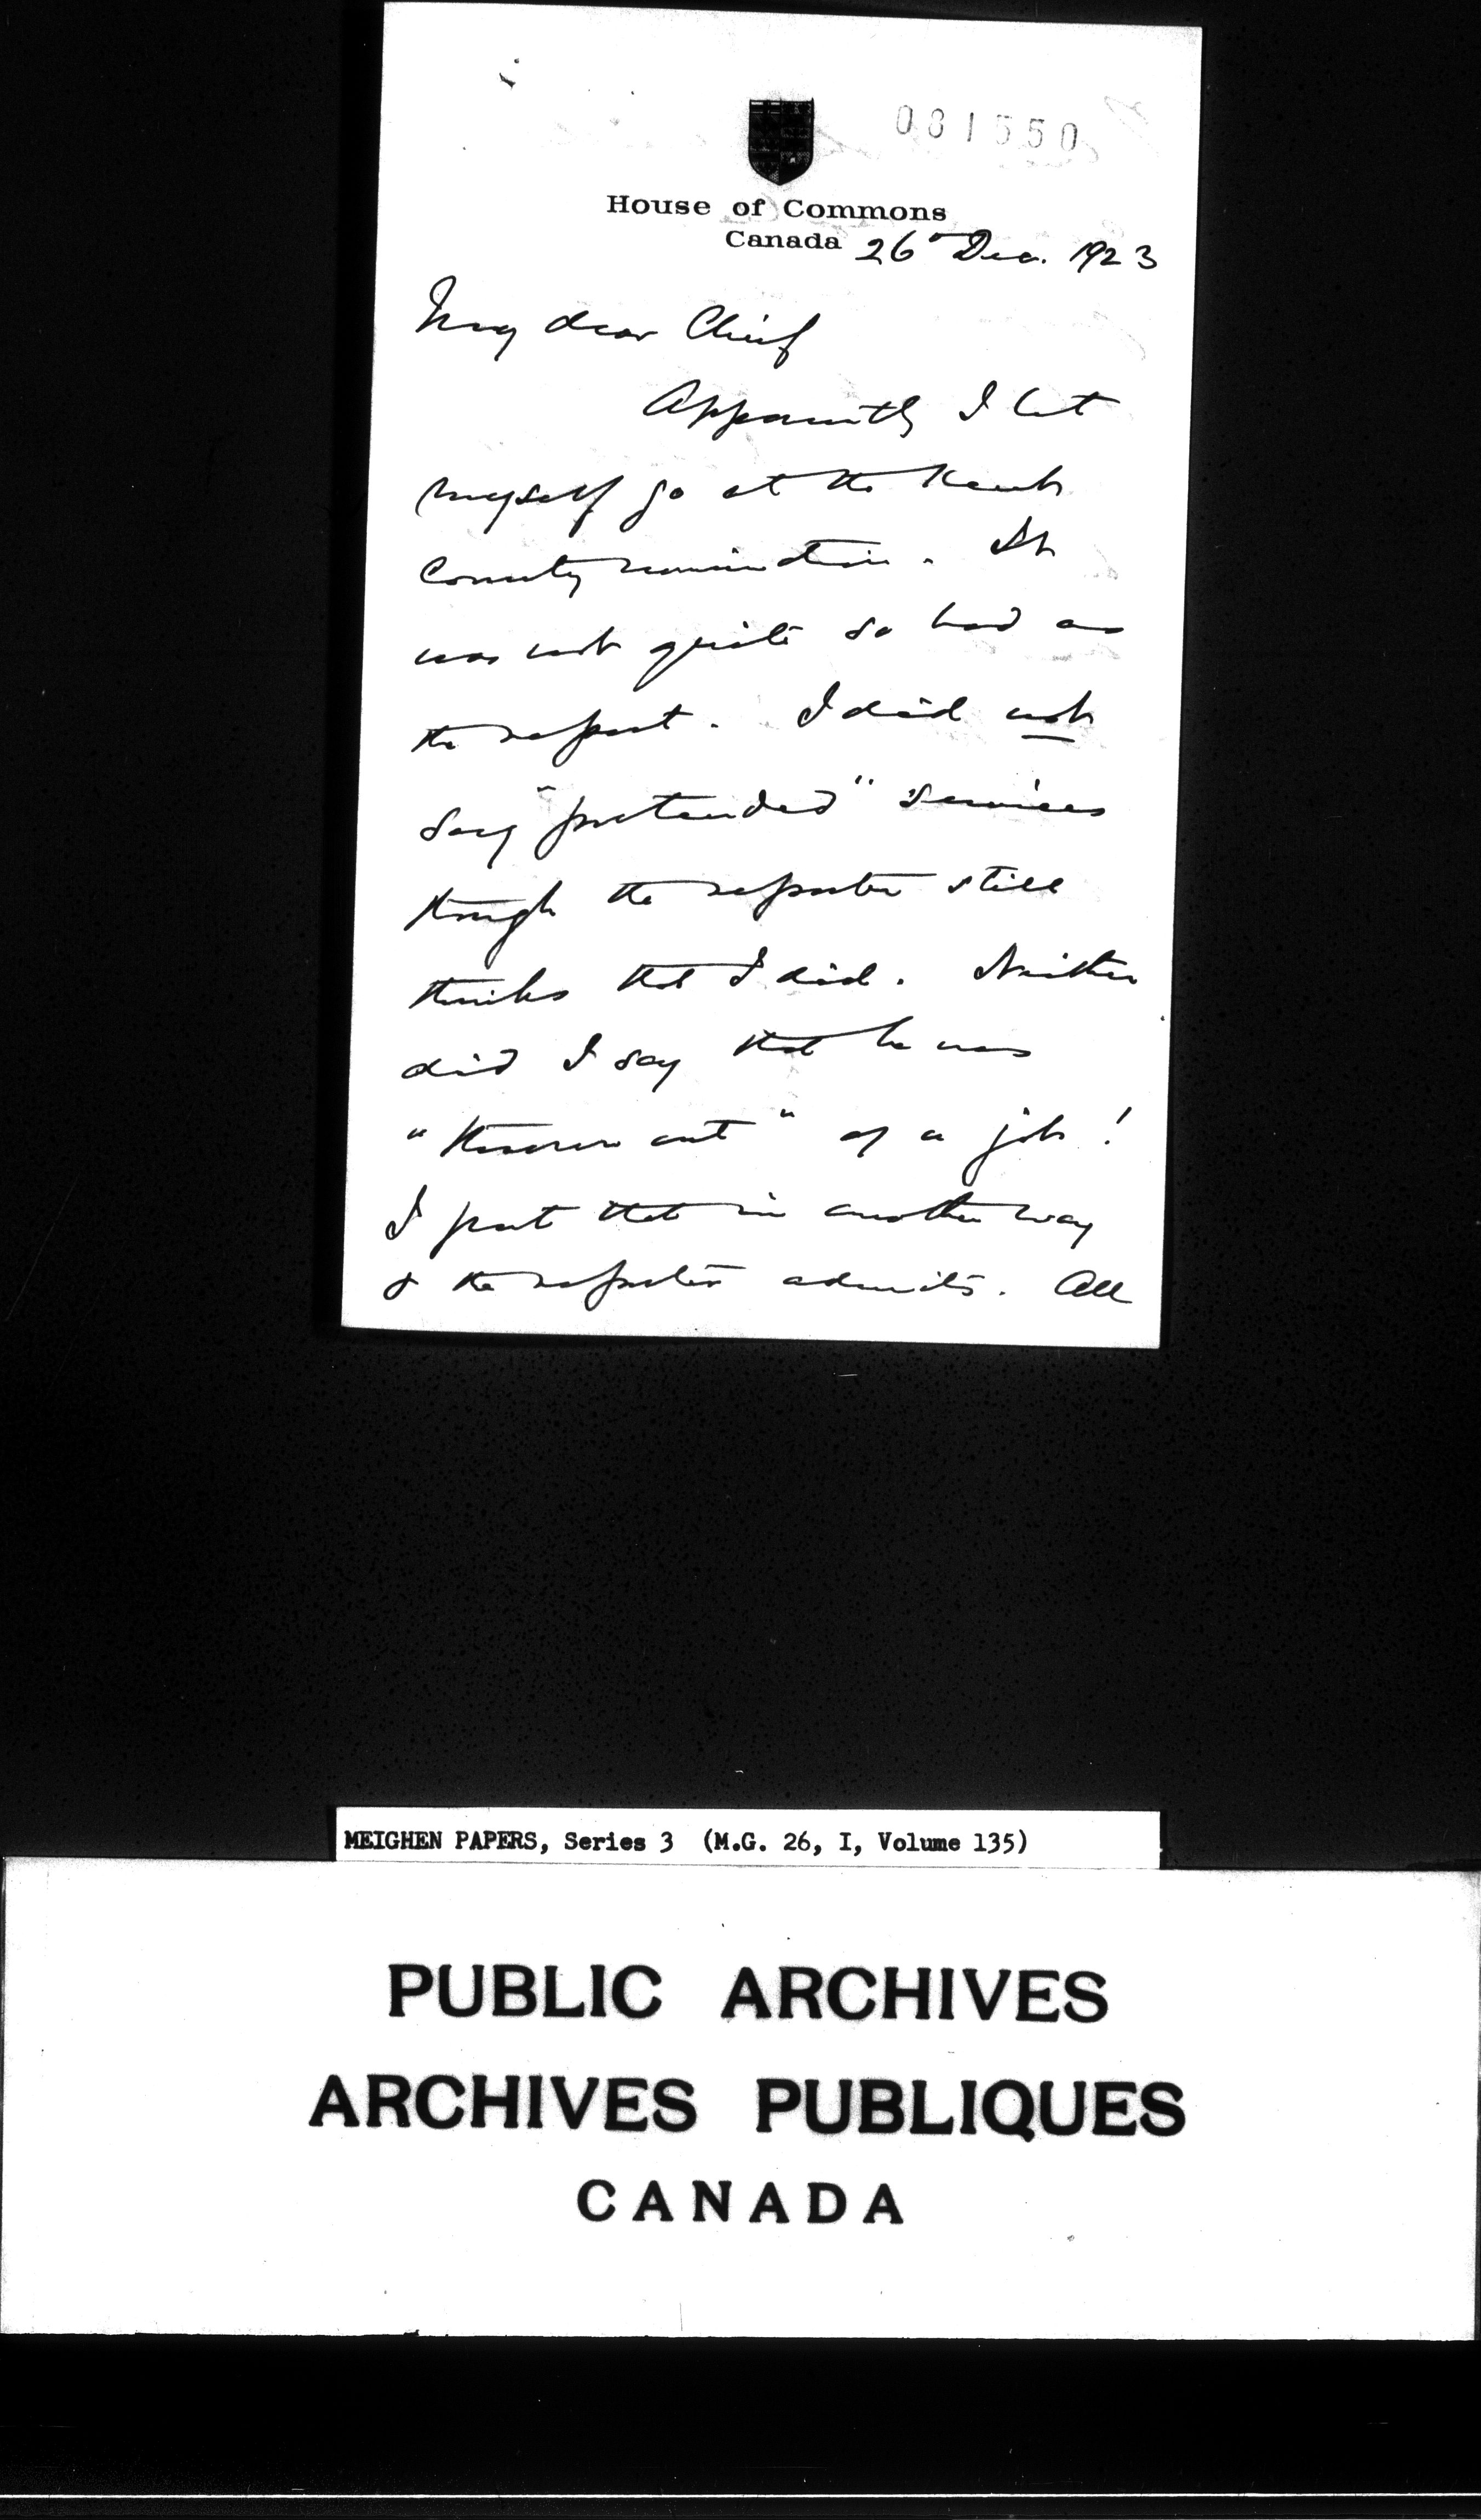 081550
House of Commons
Canada 26" Dec. 1923
My dear Chief
Apparently I let
myself go at the Kent
County nomination. It
was not quite so bad as
the report. I did not
say "pretended" services
though the reporter still
thinks that I did. Neither
did I say that he was
"thrown out" of a job!
I put that in another way
& the reporter admits. All
MEIGHEN PAPERS, Series 3 (M.G. 26, I, Volume 135)
PUBLIC ARCHIVES
ARCHIVES PUBLIQUES
CANADA